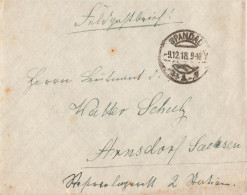 Feldpostbrief!
SPANDAU
9.12.18. 9-10 V
Herrn Leutnant d.
Walter Schulz
Arnsdorf Sachsen
2